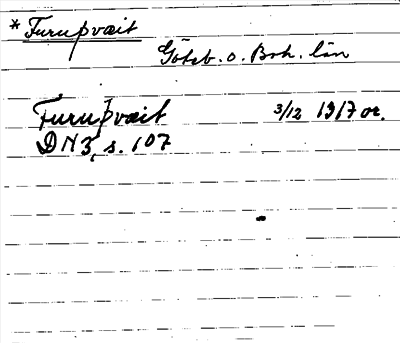 *Furuþvæit
Göteb. o. Boh. län
Furuþvæit 3/12 1317 or.
DN 3, s. 107